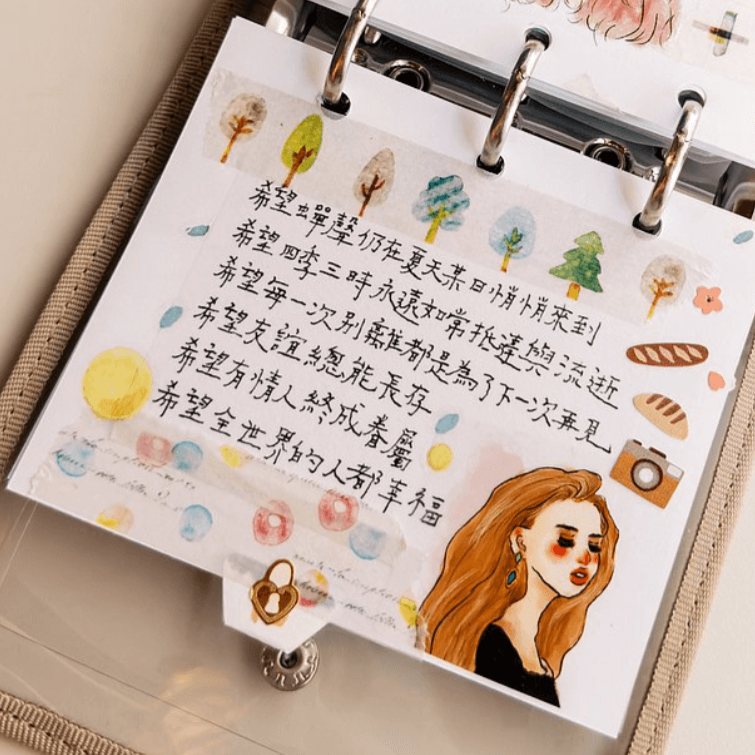 希望蟬聲仍在夏天某日悄悄來到
希望四季三時永遠如常抵達與流逝
希望每一次別離都是為了下一次再見
希望友誼總能長存
希望有情人終成眷屬
希望全世界的人都幸福